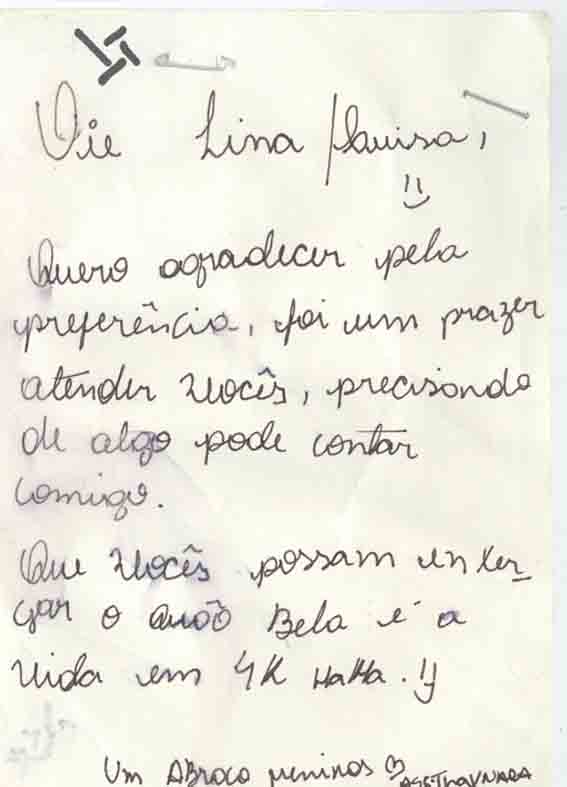 Oie Lina /Lauisa,
Quero agradecer pela
preferência, foi um prazer
atender vocês, precisando
de algo pode contar
comigo.
Que vocês possam enxer-
gar o quão Bela é a
vida em 4K HaHa. !)
Um ABraco meninas